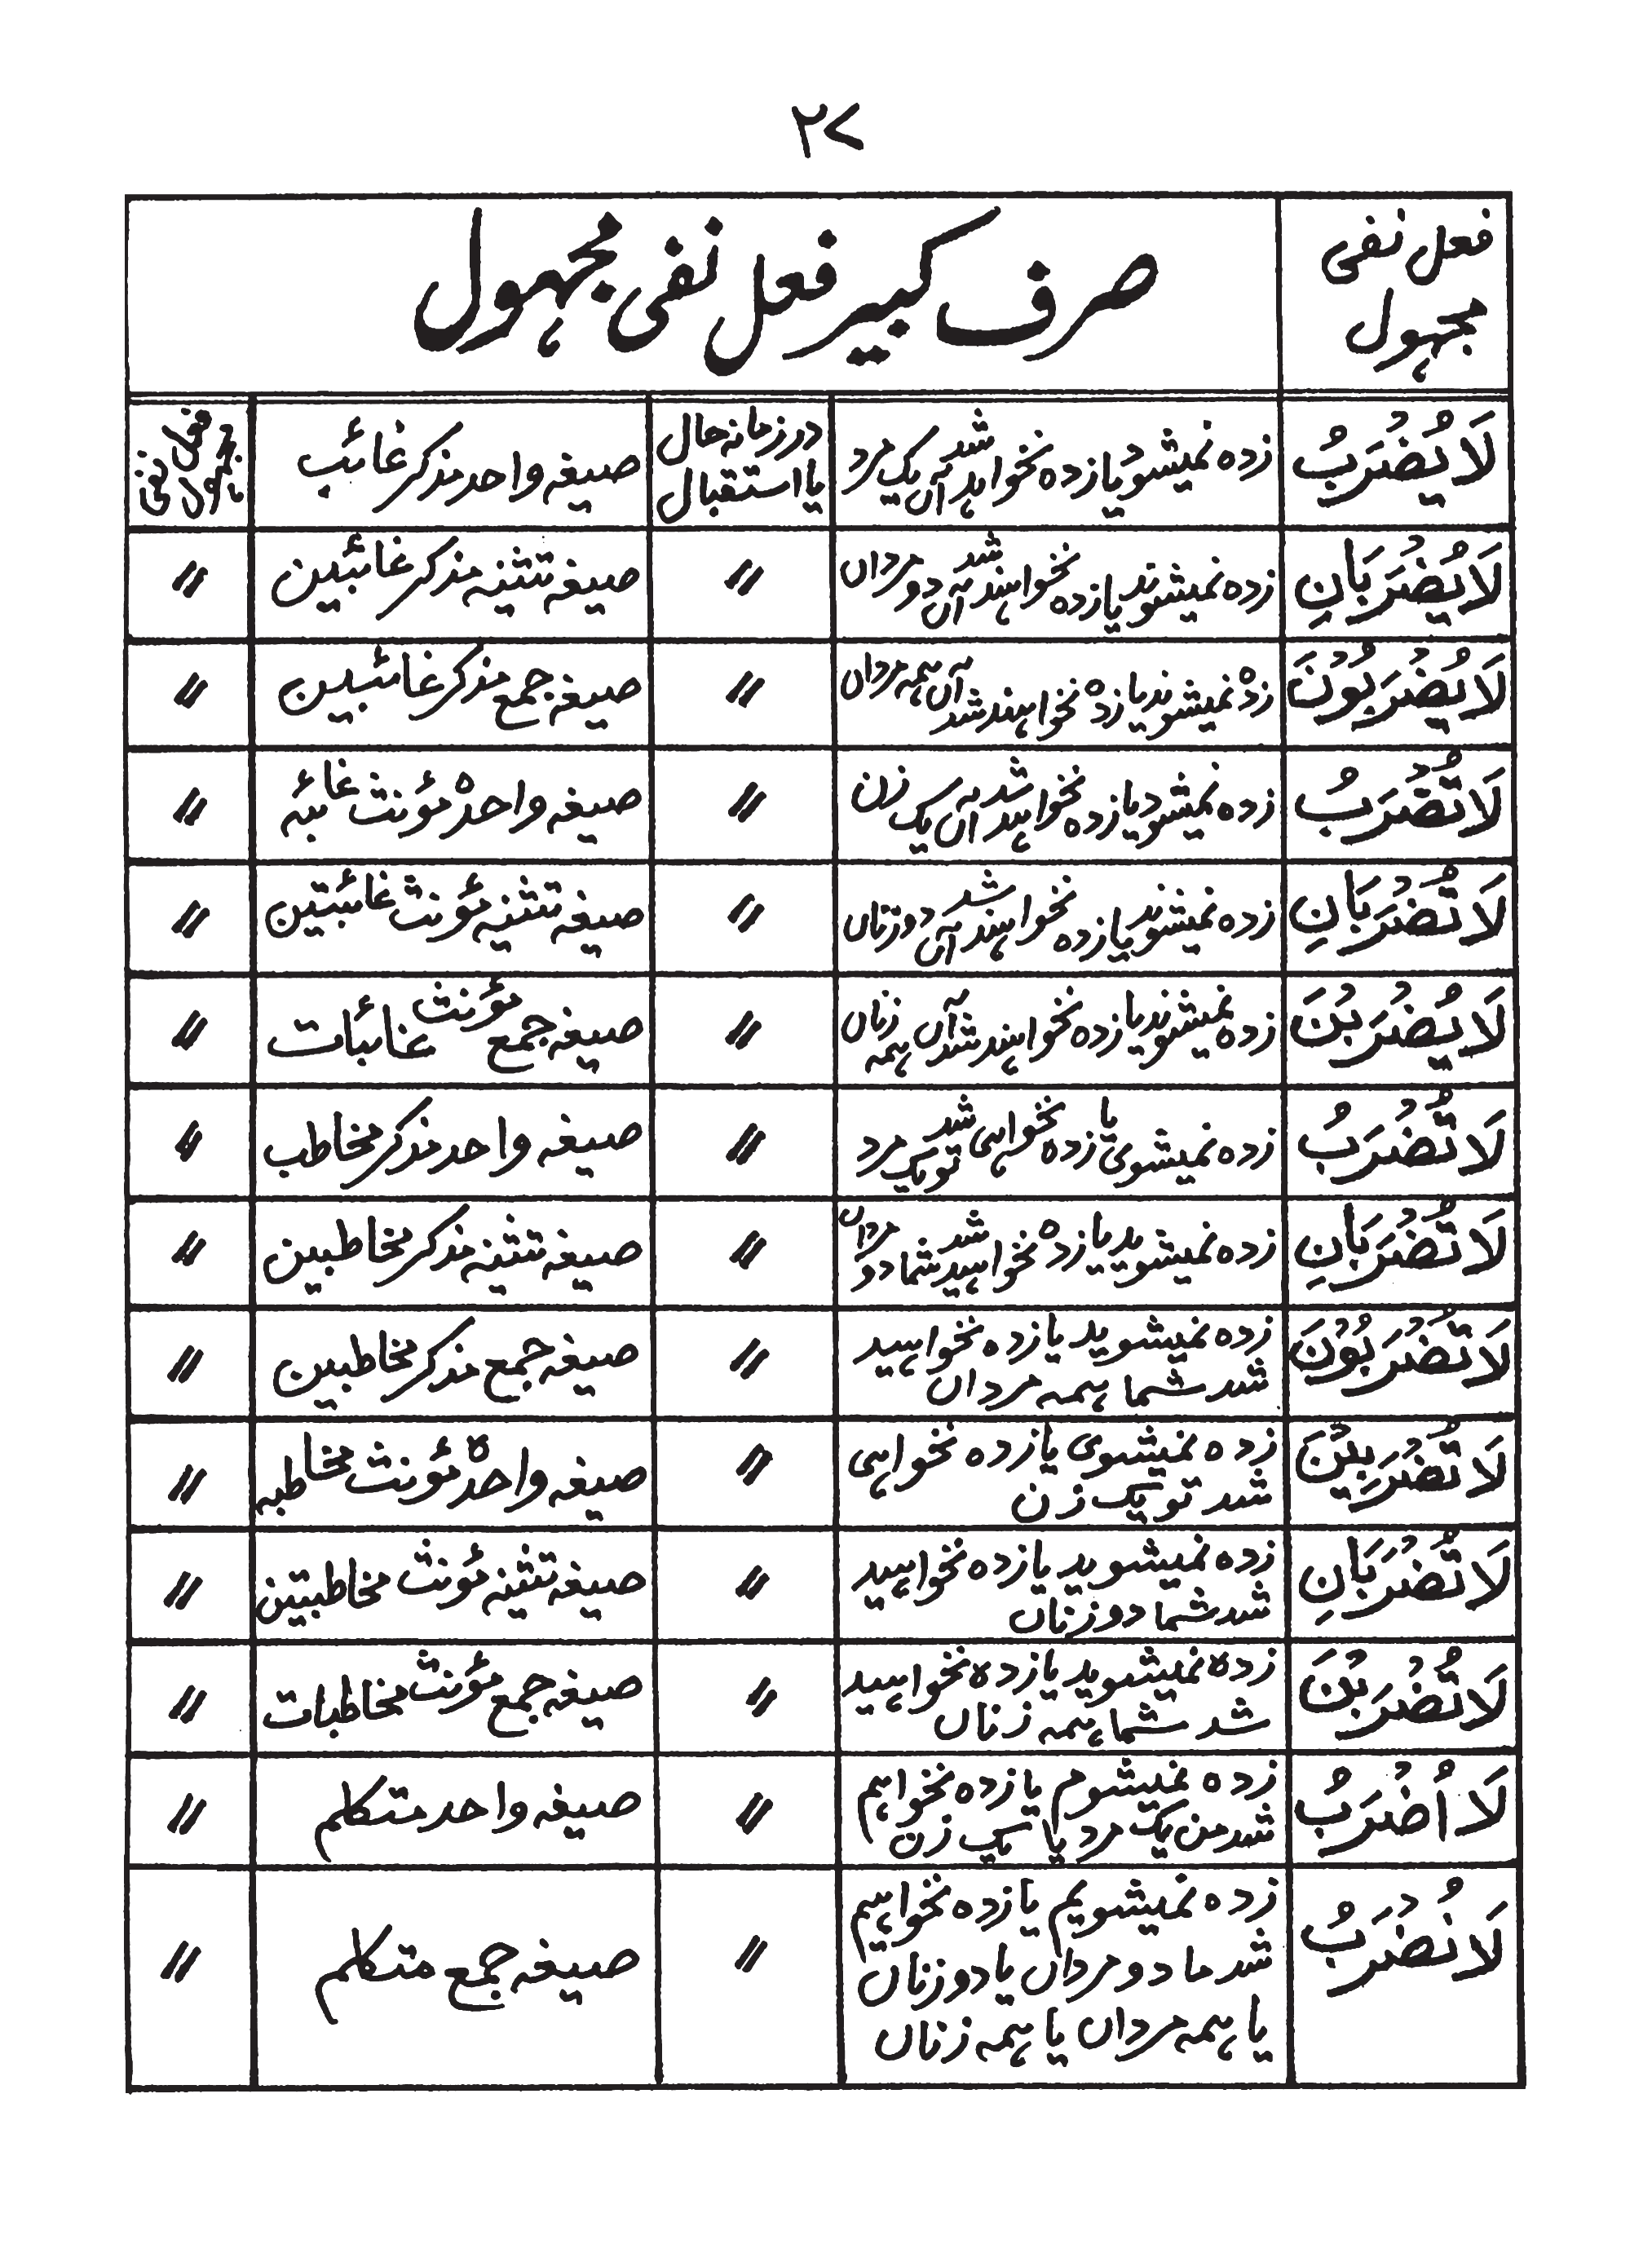 ۲۷
فعل نفی
مجہول
صرف کبیر فعل نفی مجہول
لَا یُضْرَبُ
زدہ نمیشود یا زدہ نخواہد شد آں یک مرد
در زمانہ حال
یا استقبال
صیغہ واحد مذکر غائب
فعل نفی
مجہول
لَا یُضْرَبَانِ
زدہ نمیشوند یا زدہ نخواہند شد آں دو مرداں
〃
صیغہ تثنیہ مذکر غائبین
〃
لَا یُضْرَبُوْنَ
زدہ نمیشوند یا زدہ نخواہند شد آں ہمہ مرداں
〃
صیغہ جمع مذکر غائبین
〃
لَا تُضْرَبُ
زدہ نمیشود یا زدہ نخواہد شد آں یک زن
〃
صیغہ واحدہ مؤنث غائبہ
〃
لَا تُضْرَبَانِ
زدہ نمیشوند یا زدہ نخواہند شد آں دو زناں
〃
صیغہ تثنیہ مؤنث غائبتین
〃
لَا یُضْرَبْنَ
زدہ نمیشوند یا زدہ نخواہند شد آں ہمہ زناں
〃
صیغہ جمع مؤنث غائبات
〃
لَا تُضْرَبُ
زدہ نمیشوی یا زدہ نخواہی شد تو یک مرد
〃
صیغہ واحد مذکر مخاطب
〃
لَا تُضْرَبَانِ
زدہ نمیشوید یا زدہ نخواہید شد شما دو مرداں
〃
صیغہ تثنیہ مذکر مخاطبین
〃
لَا تُضْرَبُوْنَ
زدہ نمیشوید یا زدہ نخواہید
شد شما ہمہ مرداں
〃
صیغہ جمع مذکر مخاطبین
〃
لَا تُضْرَبِیْنَ
زدہ نمیشوی یا زدہ نخواہی
شد تو یک زن
〃
صیغہ واحدہ مؤنث مخاطبہ
〃
لَا تُضْرَبَانِ
زدہ نمیشوید یا زدہ نخواہید
شد شما دو زناں
〃
صیغہ تثنیہ مؤنث مخاطبتین
〃
لَا تُضْرَبْنَ
زدہ نمیشوید یا زدہ نخواہید
شد شما ہمہ زناں
〃
صیغہ جمع مؤنث مخاطبات
〃
لَا اُضْرَبُ
زدہ نمیشوم یا زدہ نخواہم
شد من یک مرد یا یک زن
〃
صیغہ واحد متکلم
〃
لَا نُضْرَبُ
زدہ نمیشویم یا زدہ نخواہیم
شد ما دو مرداں یا دو زناں
یا ہمہ مرداں یا ہمہ زناں
〃
صیغہ جمع متکلم
〃